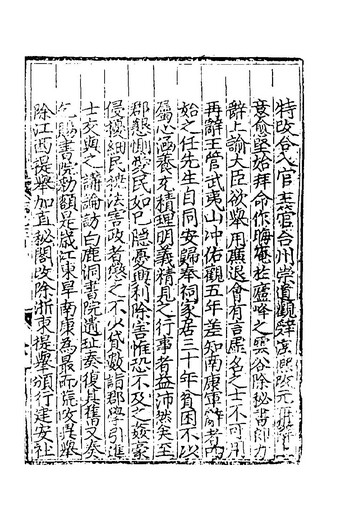 特改合入官主管台州崇道觀辭淳熙改元再辭上
意愈堅始拜命作晦菴於廬峰之雲谷除秘書郎力
辭上諭大臣欲舉用廉退會有言虛名之士不可用
再辭王管武夷山冲佑觀五年差知南康軍辭者四
始之任先生自同安歸奉祠家居三十年貧困不以
屬心涵養充積理明義精見之行事者益沛然矣至
郡懇惻愛民如己隱憂興利除害惟恐不及之姦豪
侵擾細民撓法害政者懲之不以貸數詣郡學引進
士友與之講論訪白鹿洞書院遺址奏復其舊又奏
乞賜書院勑額是歲江東旱南康為最而荒政畢舉
除江西提舉加直秘閣改除浙東提舉頒行建安社